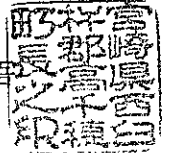 宮崎県西臼
杵郡高千穂
町長之印